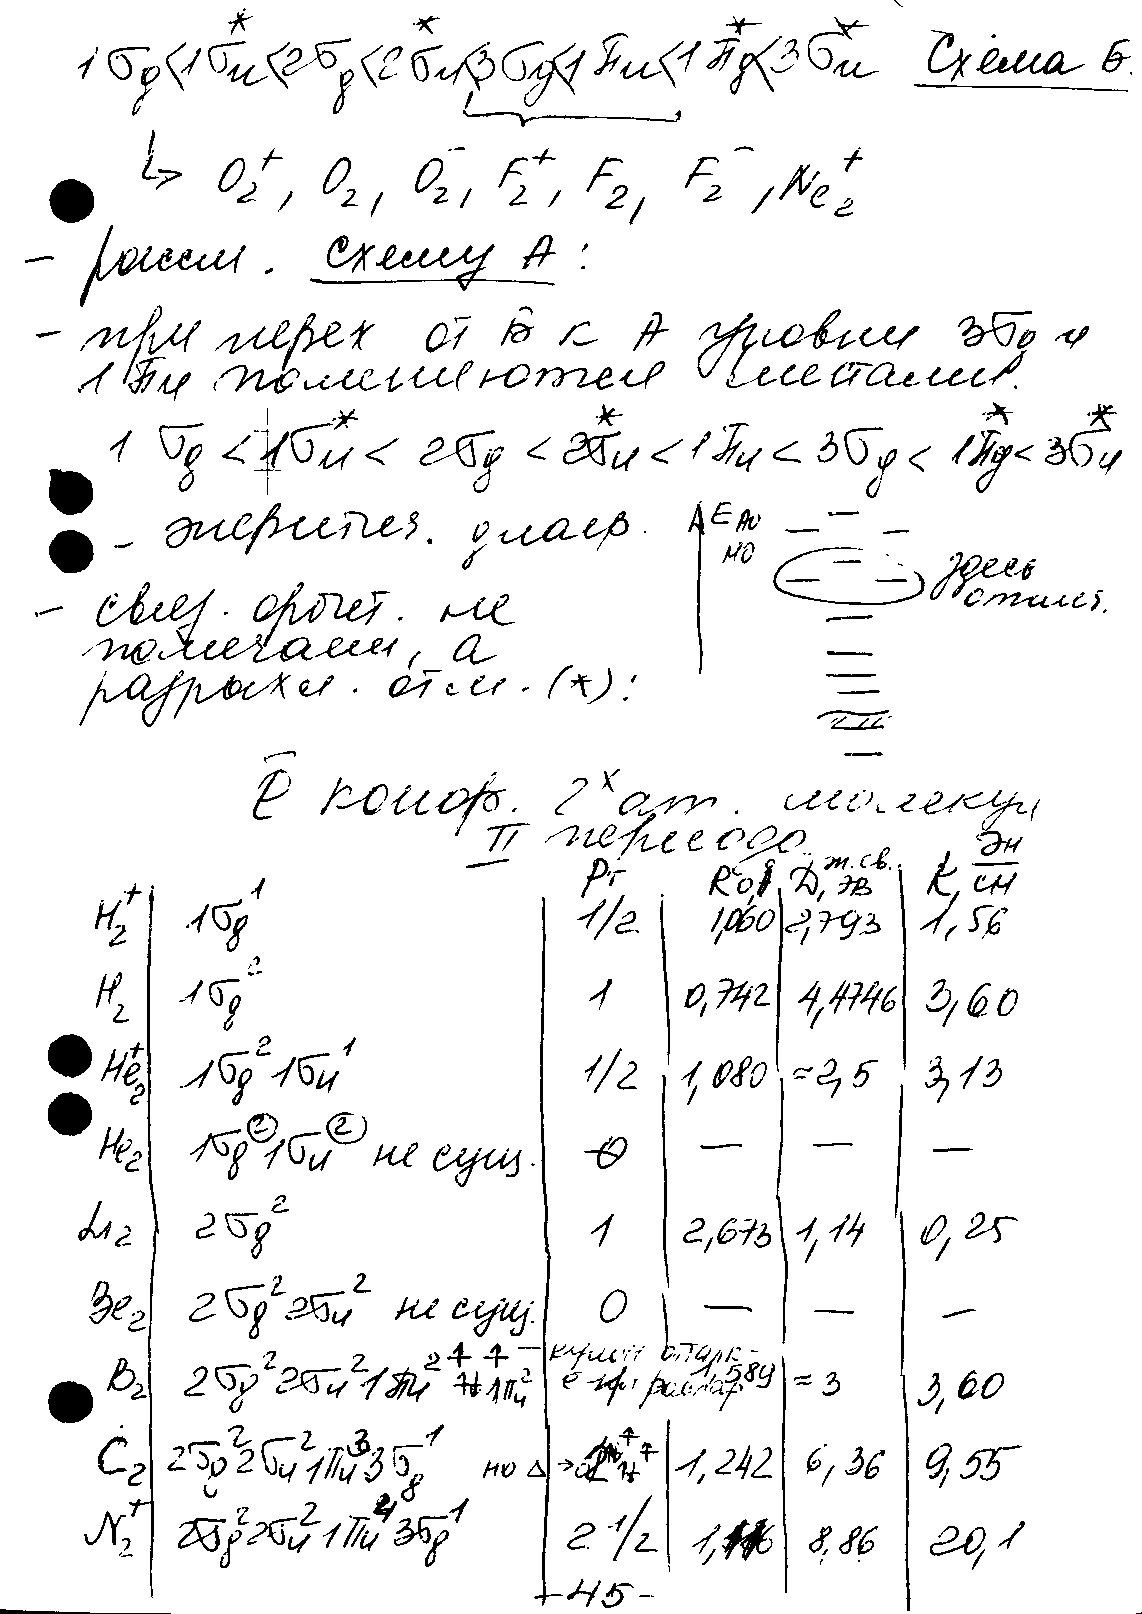 1σg<1σu*<2σg<2σu*<3σg<1πu<1πg*<3σu* Схема Б.
↳ O₂⁺, O₂, O₂⁻, F₂⁺, F₂, F₂⁻, Ne₂⁺
- рассм. схему А:
- при перех от Б к А уровни 3σg и
1πu поменяются местами.
1σg < 1σu* < 2σg < 2σu* < 1πu < 3σg < 1πg* < 3σu*
- энергетич. диагр.
E АО
МО
здесь
отлич.
- связ. орбит. не
помечаем, а
разрыхл. отм. (*):
ē конф. 2ˣ ат. молекул
II периода
Pг R₀, Д, эв ж.св. k, дн/см
H₂⁺ 1σg¹ 1/2 1,060 2,793 1,56
H₂ 1σg² 1 0,742 4,4746 3,60
He₂⁺ 1σg² 1σu¹ 1/2 1,080 ≈2,5 3,13
He₂ 1σg² 1σu² не сущ. 0 — — —
Li₂ 2σg² 1 2,673 1,14 0,25
Be₂ 2σg² 2σu² не сущ. 0 — — —
B₂ 2σg² 2σu² 1πu² 1πu² – кулон отталк- 1,589 ≈3 3,60
C₂ 2σg² 2σu² 1πu³ 3σg¹ но Δ → 1,242 6,36 9,55
N₂⁺ 2σg² 2σu² 1πu⁴ 3σg¹ 2 1/2 1,116 8,86 20,1
- 45 -